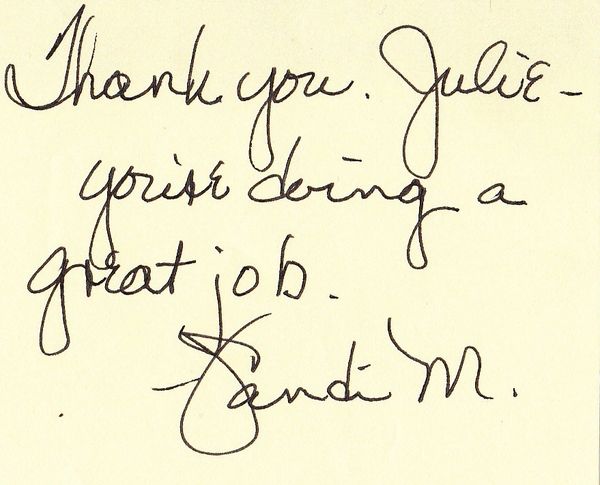 Thank you. Julie -
you're doing a
great job.
Sandi M.